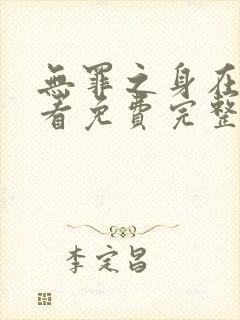 無罪之身在
看免費完整
李定昌